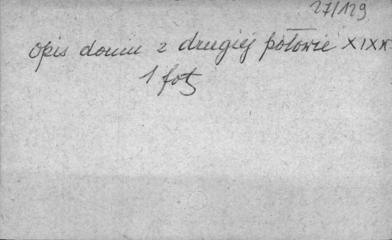 27/129
opis domu z drugiej połowie XIX w
1 fot